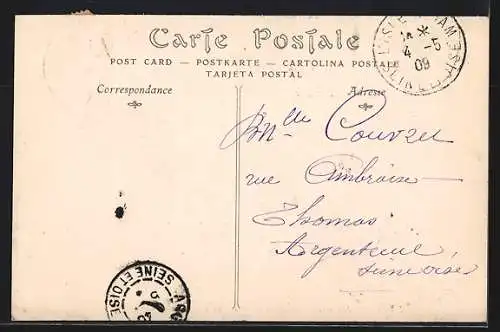 Carte Postale
POST CARD — POSTKARTE — CARTOLINA POSTALE
TARJETA POSTAL
Correspondance
Adresse
L'ISLE-ADAM
4 5
09
SEINE-ET-OISE
Mlle Couvreu
rue Ambroise
Thomas
Argenteuil
Seine oise
ARG
SEINE ET OISE